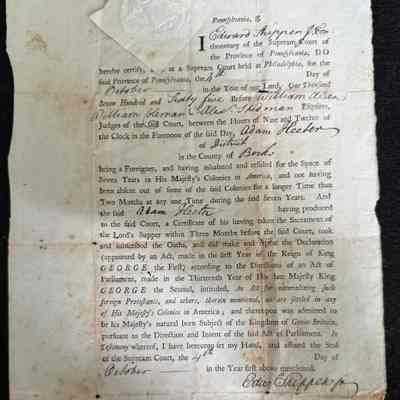 Pennsylvania, ss.
I Edward Shippen Jr. Pro-
thonotary of the Supream Court of
the Province of Pennsylvania, DO
hereby certify, That at a Supream Court held at Philadelphia, for the
said Province of Pennsylvania, the 4th Day of
October in the Year of our Lord, One Thousand
Seven Hundred and Sixty five Before William Allen
William Coleman Esquires,
Judges of the said Court, between the Hours of Nine and Twelve of
the Clock in the Forenoon of the same Day, Adam Heeter
of District
in the County of Berks
being a Foreigner, and having inhabited and resided for the Space of
Seven Years in His Majesty's Colonies in America, and not having
been absent out of some of the said Colonies for a longer Time than
Two Months at any one Time during the said seven Years. And
the said Adam Heeter having produced
to the said Court, a Certificate of his having taken the Sacrament of
the Lord's Supper within Three Months before the said Court, took
and subscribed the Oaths, and did make and repeat the Declaration
(appointed by an Act, made in the first Year of the Reign of King
GEORGE the First) according to the Directions of an Act of
Parliament, made in the Thirteenth Year of His late Majesty King
GEORGE the Second, intituled, An Act for naturalizing such
foreign Protestants, and others, therein mentioned, as are settled in any
of His Majesty's Colonies in America; and thereupon was admitted to
be his Majesty's natural born Subject of the Kingdom of Great-Britain,
pursuant to the Direction and Intent of the said Act of Parliament. In
Testimony whereof, I have hereunto set my Hand, and affixed the Seal
of the Supream Court, the 4th Day of
October in the Year first above mentioned.
Edwd Shippen Jr